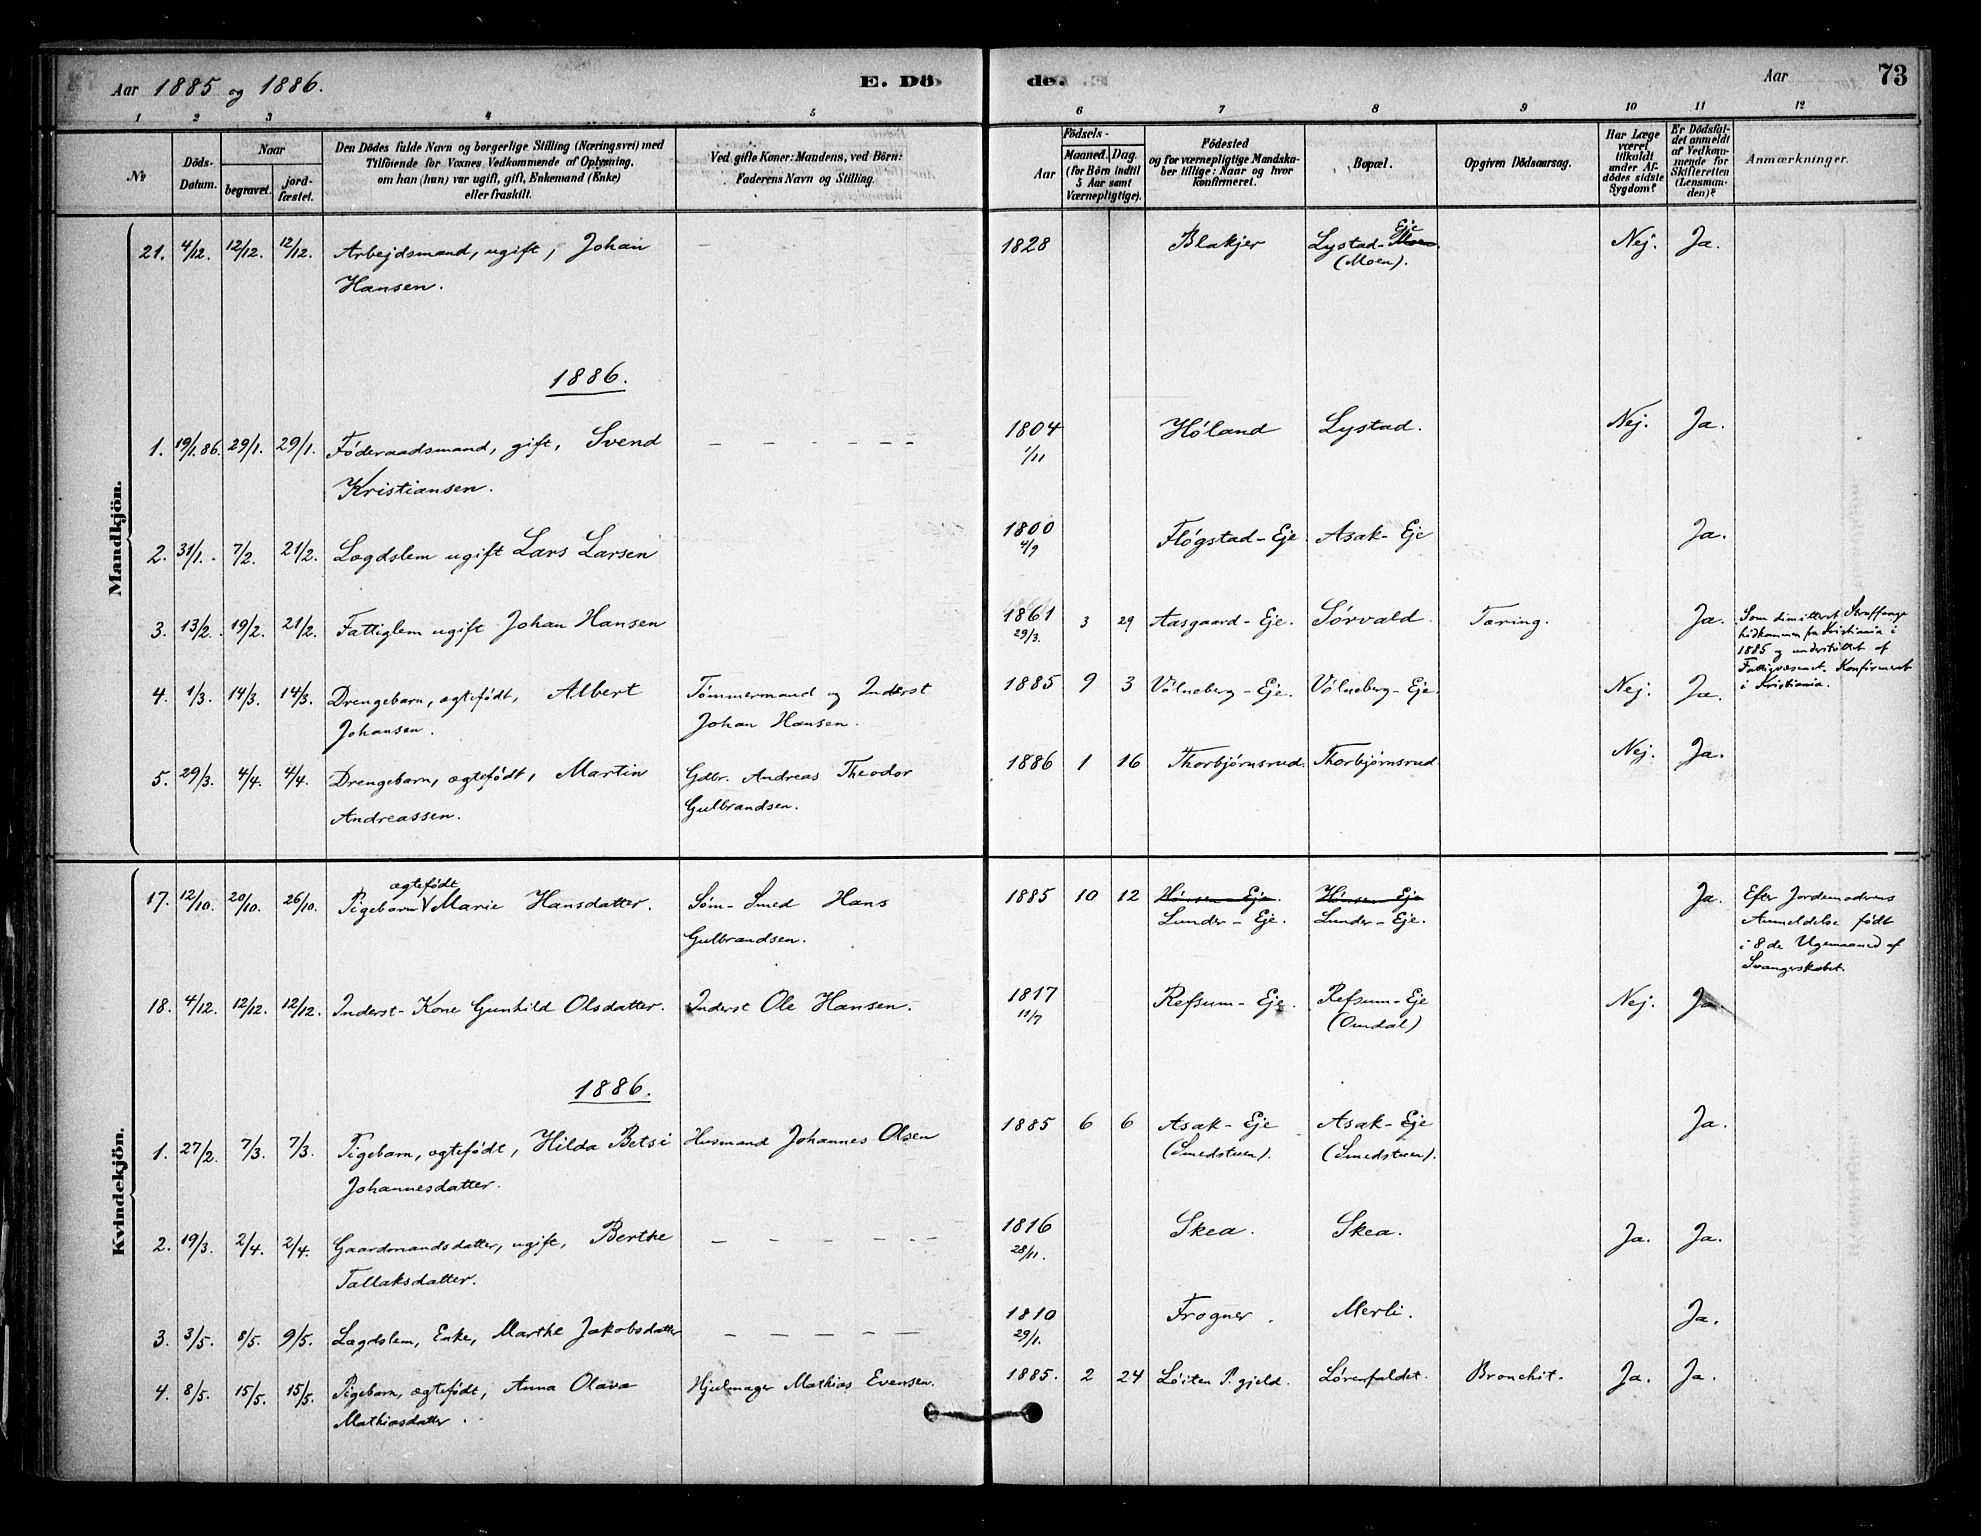 Aar 1885 og 1886. E. Döde. Aar 73
1 2 3 4 5 6 7 8 9 10 11 12
No
Döds-Datum.
Naar
begravet.
jordfæstet.
Den Dödes fulde Navn og borgerlige Stilling (Næringsvei) med
Tilföiende for Voxnes Vedkommende af Oplysning,
om han (hun) var ugift, gift, Enkemand (Enke)
eller fraskilt.
Ved gifte Koner: Mandens, ved Börn:
Faderens Navn og Stilling.
Födsels-
Aar
Maaned. Dag.
(for Börn indtil
5 Aar samt
Værnepligtige).
Födested
og for værnepligtige Mandska-
ber tillige: Naar og hvor
konfirmeret.
Bopæl.
Opgiven Dödsaarsag.
Har Læge
været
tilkaldt
under Af-
dödes sidste
Sygdom?
Er Dödsfal-
det anmeldt
af Vedkom-
mende for
Skifteretten
(Lensman-
den)?
Anmærkninger.
Mandkjön.
21. 4/12. 12/12. 12/12. Arbejdsmand, ugift, Johan 1828 Blakjer Lystad-Eje Nej. Ja.
Hansen. (Moen).
1886.
1. 19/1.86. 29/1. 29/1. Føderaadsmand, gift, Svend – – – – – – 1804 Høland Lystad. Nej. Ja.
Kristiansen. 1/11
2. 31/1. 7/2. 21/2. Lægdslem ugift Lars Larsen 1800 Fløgstad-Eje Asak-Eje Ja.
4/9
3. 13/2. 19/2. 21/2. Fattiglem ugift Johan Hansen 1861 3 29 Aasgaard-Eje. Sørvald. Tæring. Ja. Som dimitteret Straffange
29/3. hidkommen fra Kristiania i
1885 og understøttet af
Fattigvæsenet. Konfirmeret
i Kristiania.
4. 1/3. 14/3. 14/3. Drengebarn, ægtefødt, Albert Tømmermand og Inderst 1885 9 3 Vølneberg-Eje. Vølneberg-Eje. Nej. Ja.
Johansen. Johan Hansen.
5. 29/3. 4/4. 4/4. Drengebarn, ægtefødt, Martin Gdbr. Andreas Theodor 1886 1 16 Thorbjørnsrud. Thorbjørnsrud. Nej. Ja.
Andreassen. Gulbrandsen.
Kvindekjön.
ægtefødt
17. 12/10. 20/10. 26/10. Pigebarn Marie Hansdatter. Søm-Smed Hans 1885 10 12 Hønsen-Eje. Hønsen-Eje Ja. Efter Jordemoderens
Gulbrandsen. Lunder-Eje. Lunder-Eje. Anmeldelse født
i 8de Ugemaaned af
Svangerskabet.
18. 4/12. 12/12. 12/12. Inderst-Kone Gunhild Olsdatter. Inderst Ole Hansen. 1817 Refsum-Eje. Refsum-Eje Nej. Ja.
11/7 (Omdal)
1886.
1. 27/2. 7/3. 7/3. Pigebarn, ægtefødt, Hilda Betsi Husmand Johannes Olsen 1885 6 6 Asak-Eje Asak-Eje Ja.
Johannesdatter. (Smedstuen). (Smedstuen).
2. 19/3. 2/4. 2/4. Gaardmandsdatter, ugift, Berthe – – – – – 1816 Skea. Skea. Ja. Ja.
Tallaksdatter. 28/11.
3. 3/5. 8/5. 9/5. Lægdslem, Enke, Marthe Jakobsdatter – – – – – 1810 Frogner. Merli. Ja.
29/1.
4. 8/5. 15/5. 15/5. Pigebarn, ægtefødt, Anna Olava Hjulmager Mathias Evensen. 1885. 2 24 Løiten P. gjeld. Lørenfaldet. Bronchit. Ja. Ja.
Mathiasdatter.